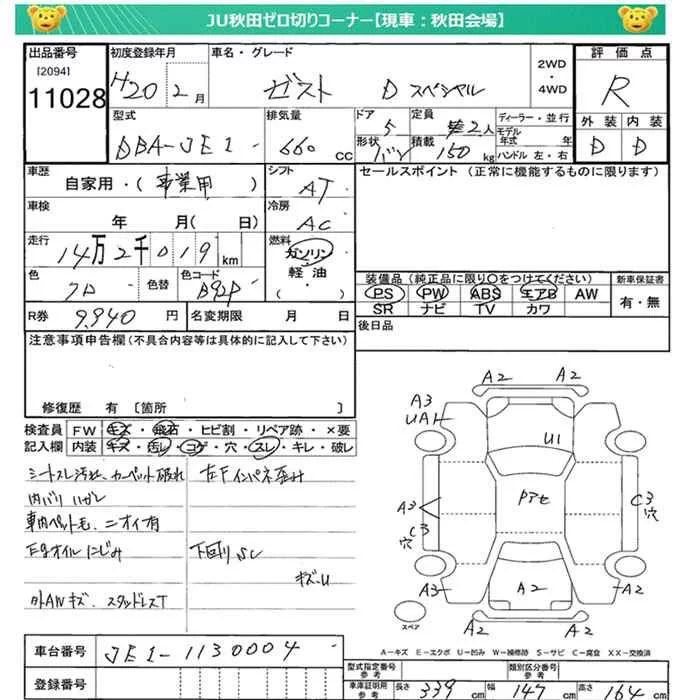 JU秋田ゼロ切りコーナー【現車：秋田会場】
出品番号 初度登録年月 車名・グレード 2WD・4WD 評価点
[2094]
11028 H20 2月 ゼスト D スペシャル R
型式 排気量 ドア 定員 ディーラー・並行 外装 内装
DBA-JE1 660 cc 5 2人 モデル年式 年 D D
形状 バン 積載 150 kg ハンドル 左・右
車歴 シフト セールスポイント（正常に機能するものに限ります）
自家用・(事業用) AT
車検 冷房
年 月( 日) AC
走行 燃料
14万2千019 km ガソリン・軽油・( )
色 色替 色コード 装備品（純正品に限り○をつけてください） 新車保証書
B92P PS PW ABS エアB AW 有・無
SR ナビ TV カワ
R券 9,940 円 名変期限 月 日 後日品
注意事項申告欄（不具合内容等は具体的に記入して下さい）
修復歴 有 〔箇所 〕
検査員 FW ・キズ・飛石・ヒビ割・リペア跡・×要
記入欄 内装 ・キズ・汚レ・コゲ・穴・スレ・キレ・破レ
シートスレ汚れ、カーペット破れ 左Fインパネ歪み
内バリ ハガレ
車内ペット毛、ニオイ有
E各オイルにじみ 下回りSC
キズ・U
外AWキズ、スタッドレスT
A2 A2
A3
UA1
U1
Pアセ
A3 C3 穴
C3 穴
A2
スペア A2 A2
A－キズ E－エクボ U－凹み W－補修跡 S－サビ C－腐食 XX－交換済
車台番号 JE1-1130004
登録番号
型式指定番号 参考 類別区分番号 参考
車庫証明用 参考 長さ 339 cm 幅 147 cm 高さ 164 cm